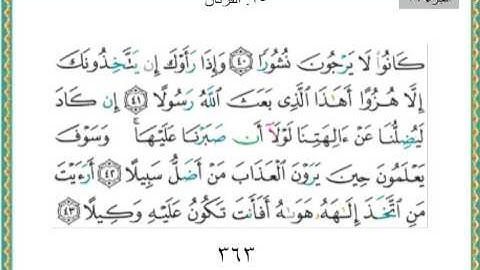 كَانُوا۟ لَا يَرْجُونَ نُشُورًا ٤٠ وَإِذَا رَأَوْكَ إِن يَتَّخِذُونَكَ
إِلَّا هُزُوًا أَهَٰذَا ٱلَّذِى بَعَثَ ٱللَّهُ رَسُولًا ٤١ إِن كَادَ
لَيُضِلُّنَا عَنْ ءَالِهَتِنَا لَوْلَآ أَن صَبَرْنَا عَلَيْهَا ۚ وَسَوْفَ
يَعْلَمُونَ حِينَ يَرَوْنَ ٱلْعَذَابَ مَنْ أَضَلُّ سَبِيلًا ٤٢ أَرَءَيْتَ
مَنِ ٱتَّخَذَ إِلَٰهَهُۥ هَوَىٰهُ أَفَأَنتَ تَكُونُ عَلَيْهِ وَكِيلًا ٤٣
٣٦٣